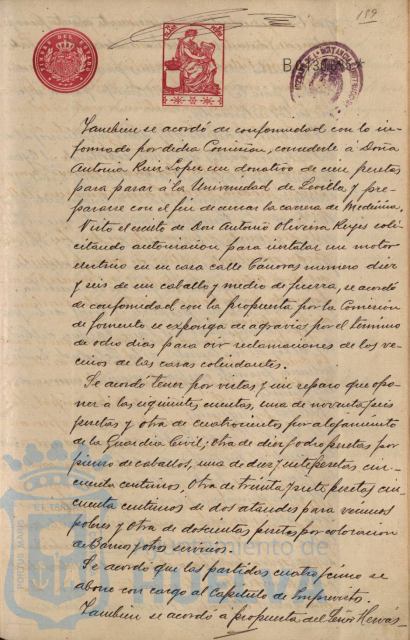 189
TIMBRE DEL ESTADO
Tambien se acordó de conformidad con lo in-
formado por dicha Comision, concederle á Doña
Antonia Ruiz Lopez un donativo de cien pesetas
para pasar á la Universidad de Sevilla y pre-
pararse con el fin de cursar la carrera de Medicina.
Visto el escrito de Don Antonio Oliveira Reyes soli-
citando autorizacion para instalar un motor
electrico en su casa calle Cánovas numero diez
y seis de un caballo y medio de fuerza, se acordó
de conformidad con la propuesta por la Comision
de fomento se exponga de agravios por el término
de ocho dias para oir reclamaciones de los ve-
cinos de las casas colindantes.
Se acordó tener por vistas y sin reparo que opo-
ner á las siguientes cuentas, una de noventa y seis
pesetas y otra de cuatrocientos por alojamiento
de la Guardia Civil; otra de diez y ocho pesetas por
pienso de caballos, una de diez y siete pesetas cin-
cuenta centimos, otra de treinta y siete pesetas cin-
cuenta centimos de dos ataudes para vecinos
pobres y otra de doscientas pesetas por colocacion
de Bancos y otros servicios.
Se acordó que las partidas cuatro y cinco se
abone con cargo al Capitulo de Imprevistos.
Tambien se acordó á propuesta del Señor Hervás
PORTUS MARIS
Ayuntamiento de
HUELVA